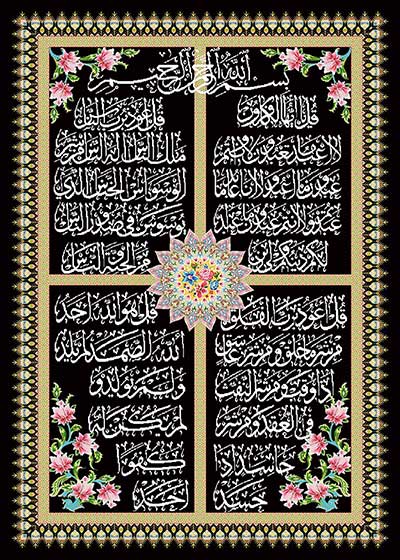 بسم الله الرحمن الرحيم
قل يا ايها الكافرون
لا اعبد ما تعبدون ولا انتم
عابدون ما اعبد ولا انا عابد ما
عبدتم ولا انتم عابدون ما اعبد
لكم دينكم ولي دين
قل اعوذ برب الناس
ملك الناس اله الناس من شر
الوسواس الخناس الذي
يوسوس في صدور الناس
من الجنة و الناس
قل اعوذ برب الفلق
من شر ما خلق و من شر غاسق
اذا وقب و من شر النفاثات
في العقد و من شر
حاسد اذا
حسد
قل هو الله احد
الله الصمد لم يلد
و لم يولد و
لم يكن له
كفوا
احد